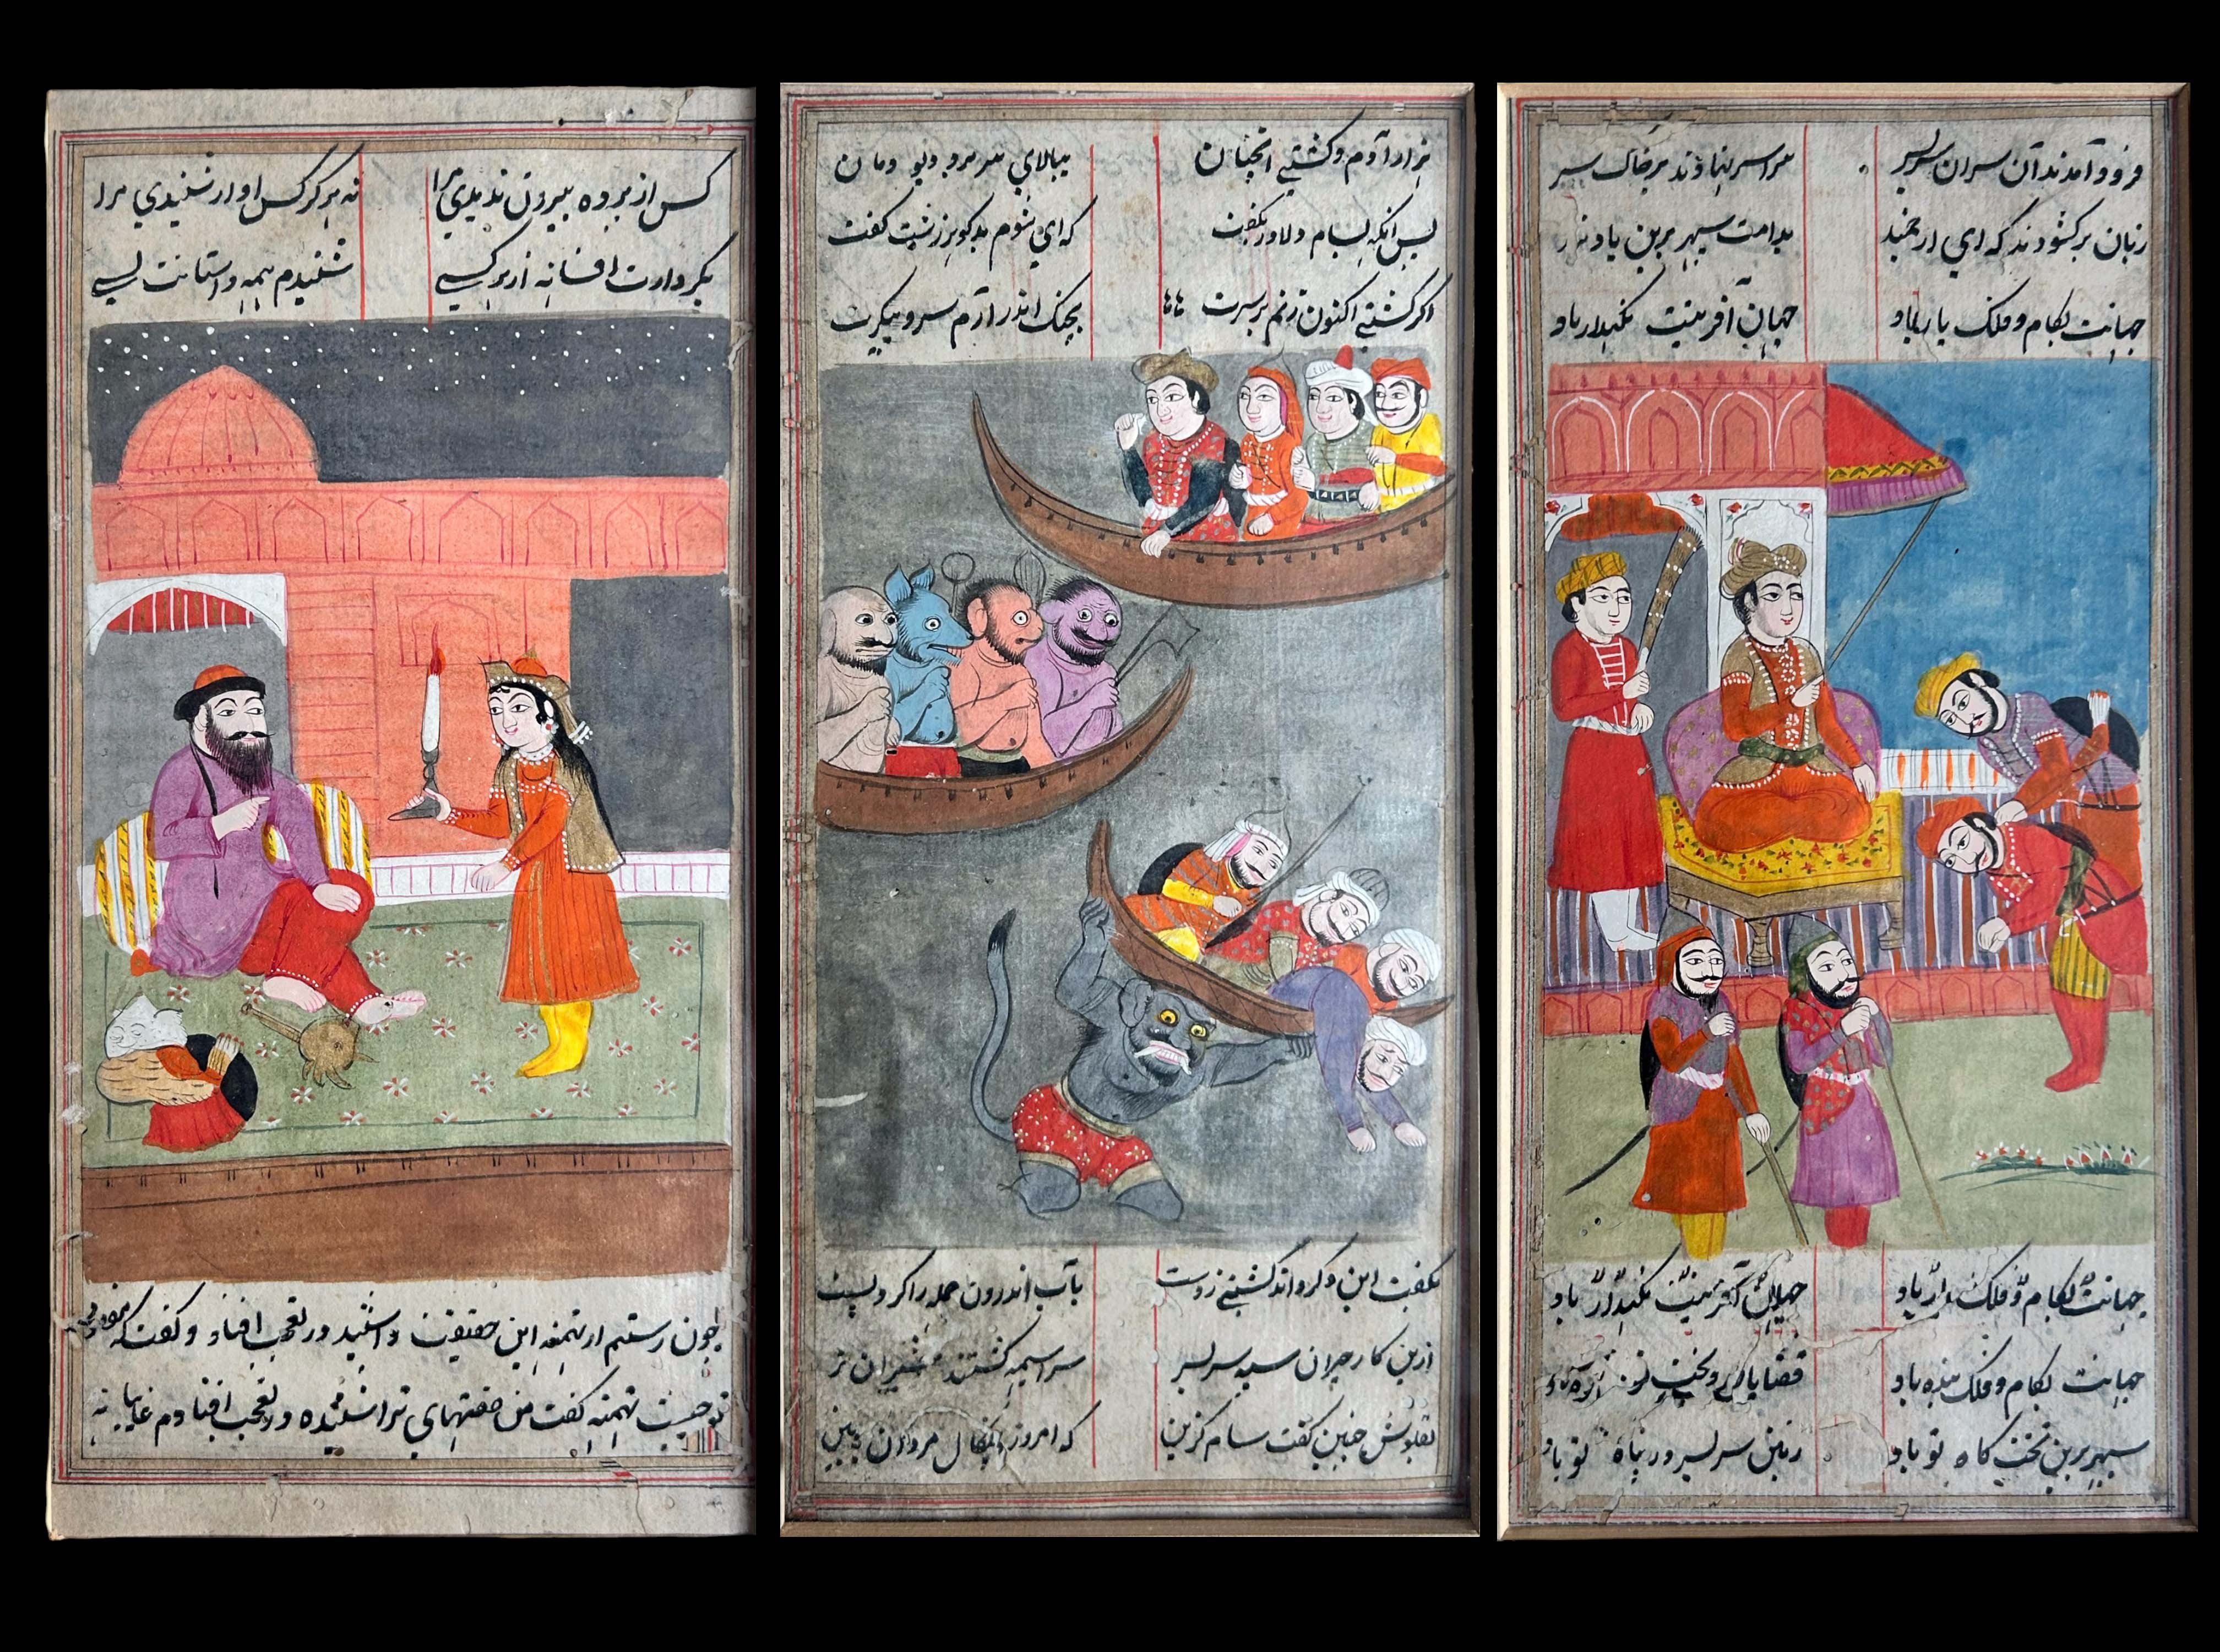 کس از پرده بیرون ندیدی مرا نه هرگز کس اوار شنیدی مرا
بکردارت افسانه از هر کسے شنیدم همه داستانت بسے
چون رستم از تهمنه این حقیقت را شنید در تعجب افتاد و گفت که
تو چیست تهمنه گفت من صفتهای ترا شنیده در تعجب افتادم غایبانه
هزار آدم و کشتے انچنان ببالای سر برد دیو دمان
پس آنکه بسام دلاور بگفت که ای شوم بدگوهر زشت گفت
اگر کشتے اکنون زنم بر سرت بچنگ اندر آرم سر و پیکرت
بگفت این و کرد اند کشتے زدست بآب اندرون جمله را کرد پست
ازین کار حیران سپه سر بسر سراسیمه گشتند شیران نر
بقلوش چنین گفت سام گزین که امروز چنکال مردان ببین
فرود آمدند آن سران سر بسر سراسر نهادند بر خاک سر
زبان برکشودند که ای ارجمند بدامت سپهر برین باد
جهانت بکام و فلک یار باد جهان آفرینت نگهدار باد
جهانت بکام و فلک یار باد جهان آفرینت نگهدار باد
جهانت بکام و فلک بنده باد
سپهر برین تخت کاه تو باد زمین سر بسر در پناه تو باد